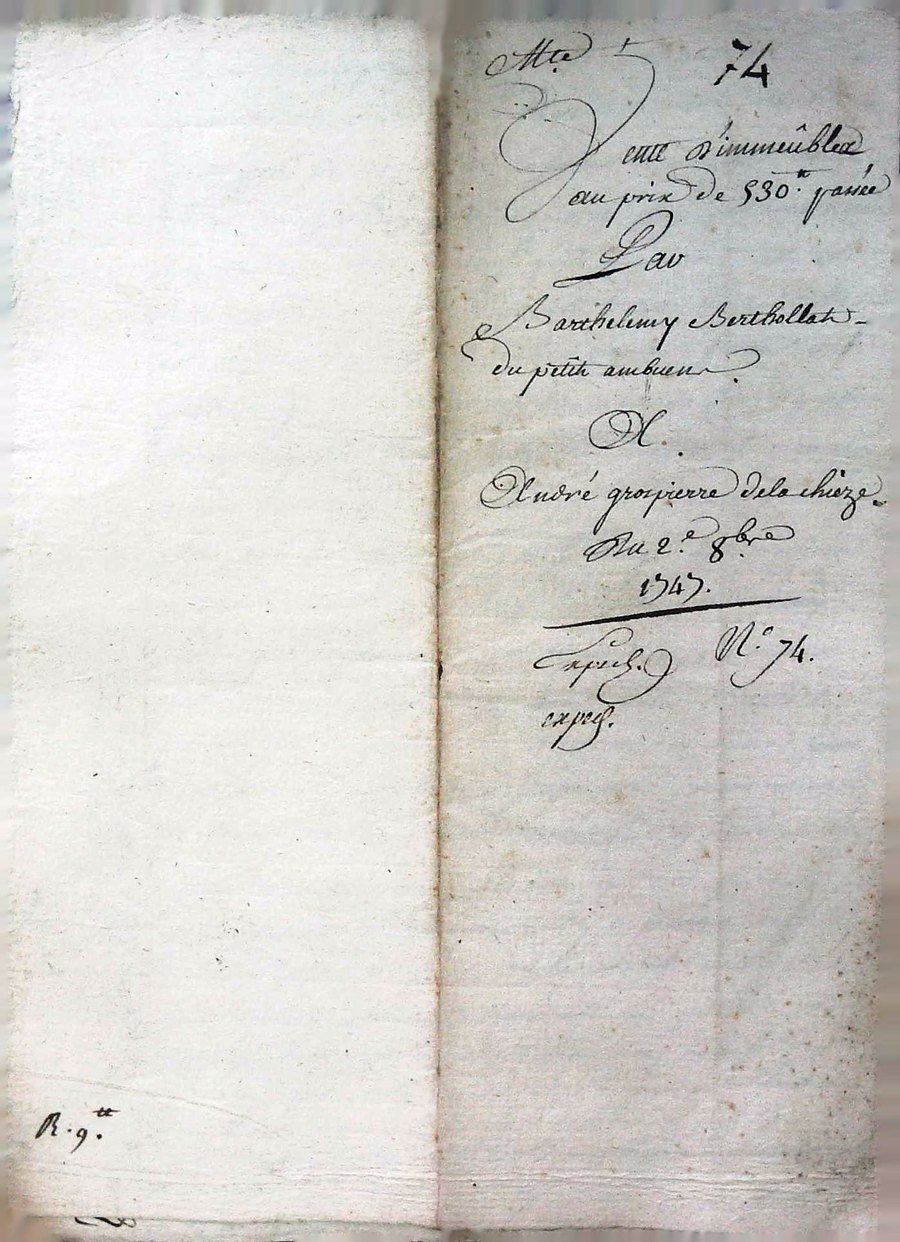 Mte
74
Vente d'immeûbles
au prix de 530.tt passée
Par
Barthelemy Berthollat
du petit ambuens
A.
André grospierre dela chièze.
Du 2.e 8bre
1747.
N.o 74.
exped.
exped.
R. 9.tt